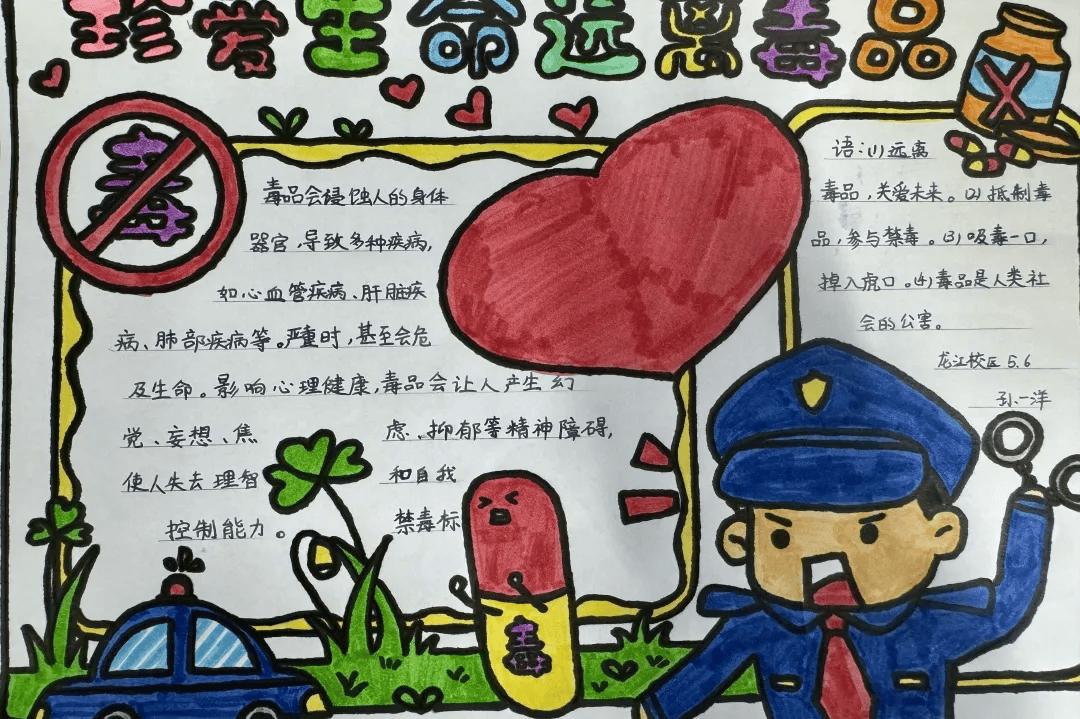 珍爱生命远离毒品
毒
毒品会侵蚀人的身体
器官,导致多种疾病,
如心血管疾病、肝脏疾
病、肺部疾病等。严重时,甚至会危
及生命。影响心理健康,毒品会让人产生幻
党、妄想、焦 虑、抑郁等精神障碍,
使人失去理智 和自我
控制能力。 禁毒标
语:(1)远离
毒品,关爱未来。(2)抵制毒
品,参与禁毒。(3)吸毒一口,
掉入虎口。(4)毒品是人类社
会的公害。
龙江校区 5.6
孙一洋
毒